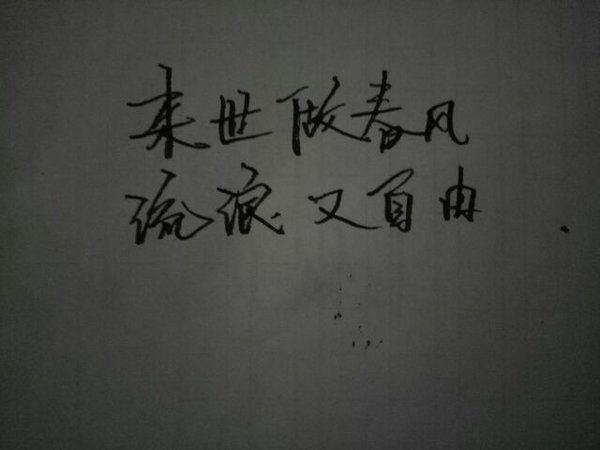 来世做春风
流浪又自由.